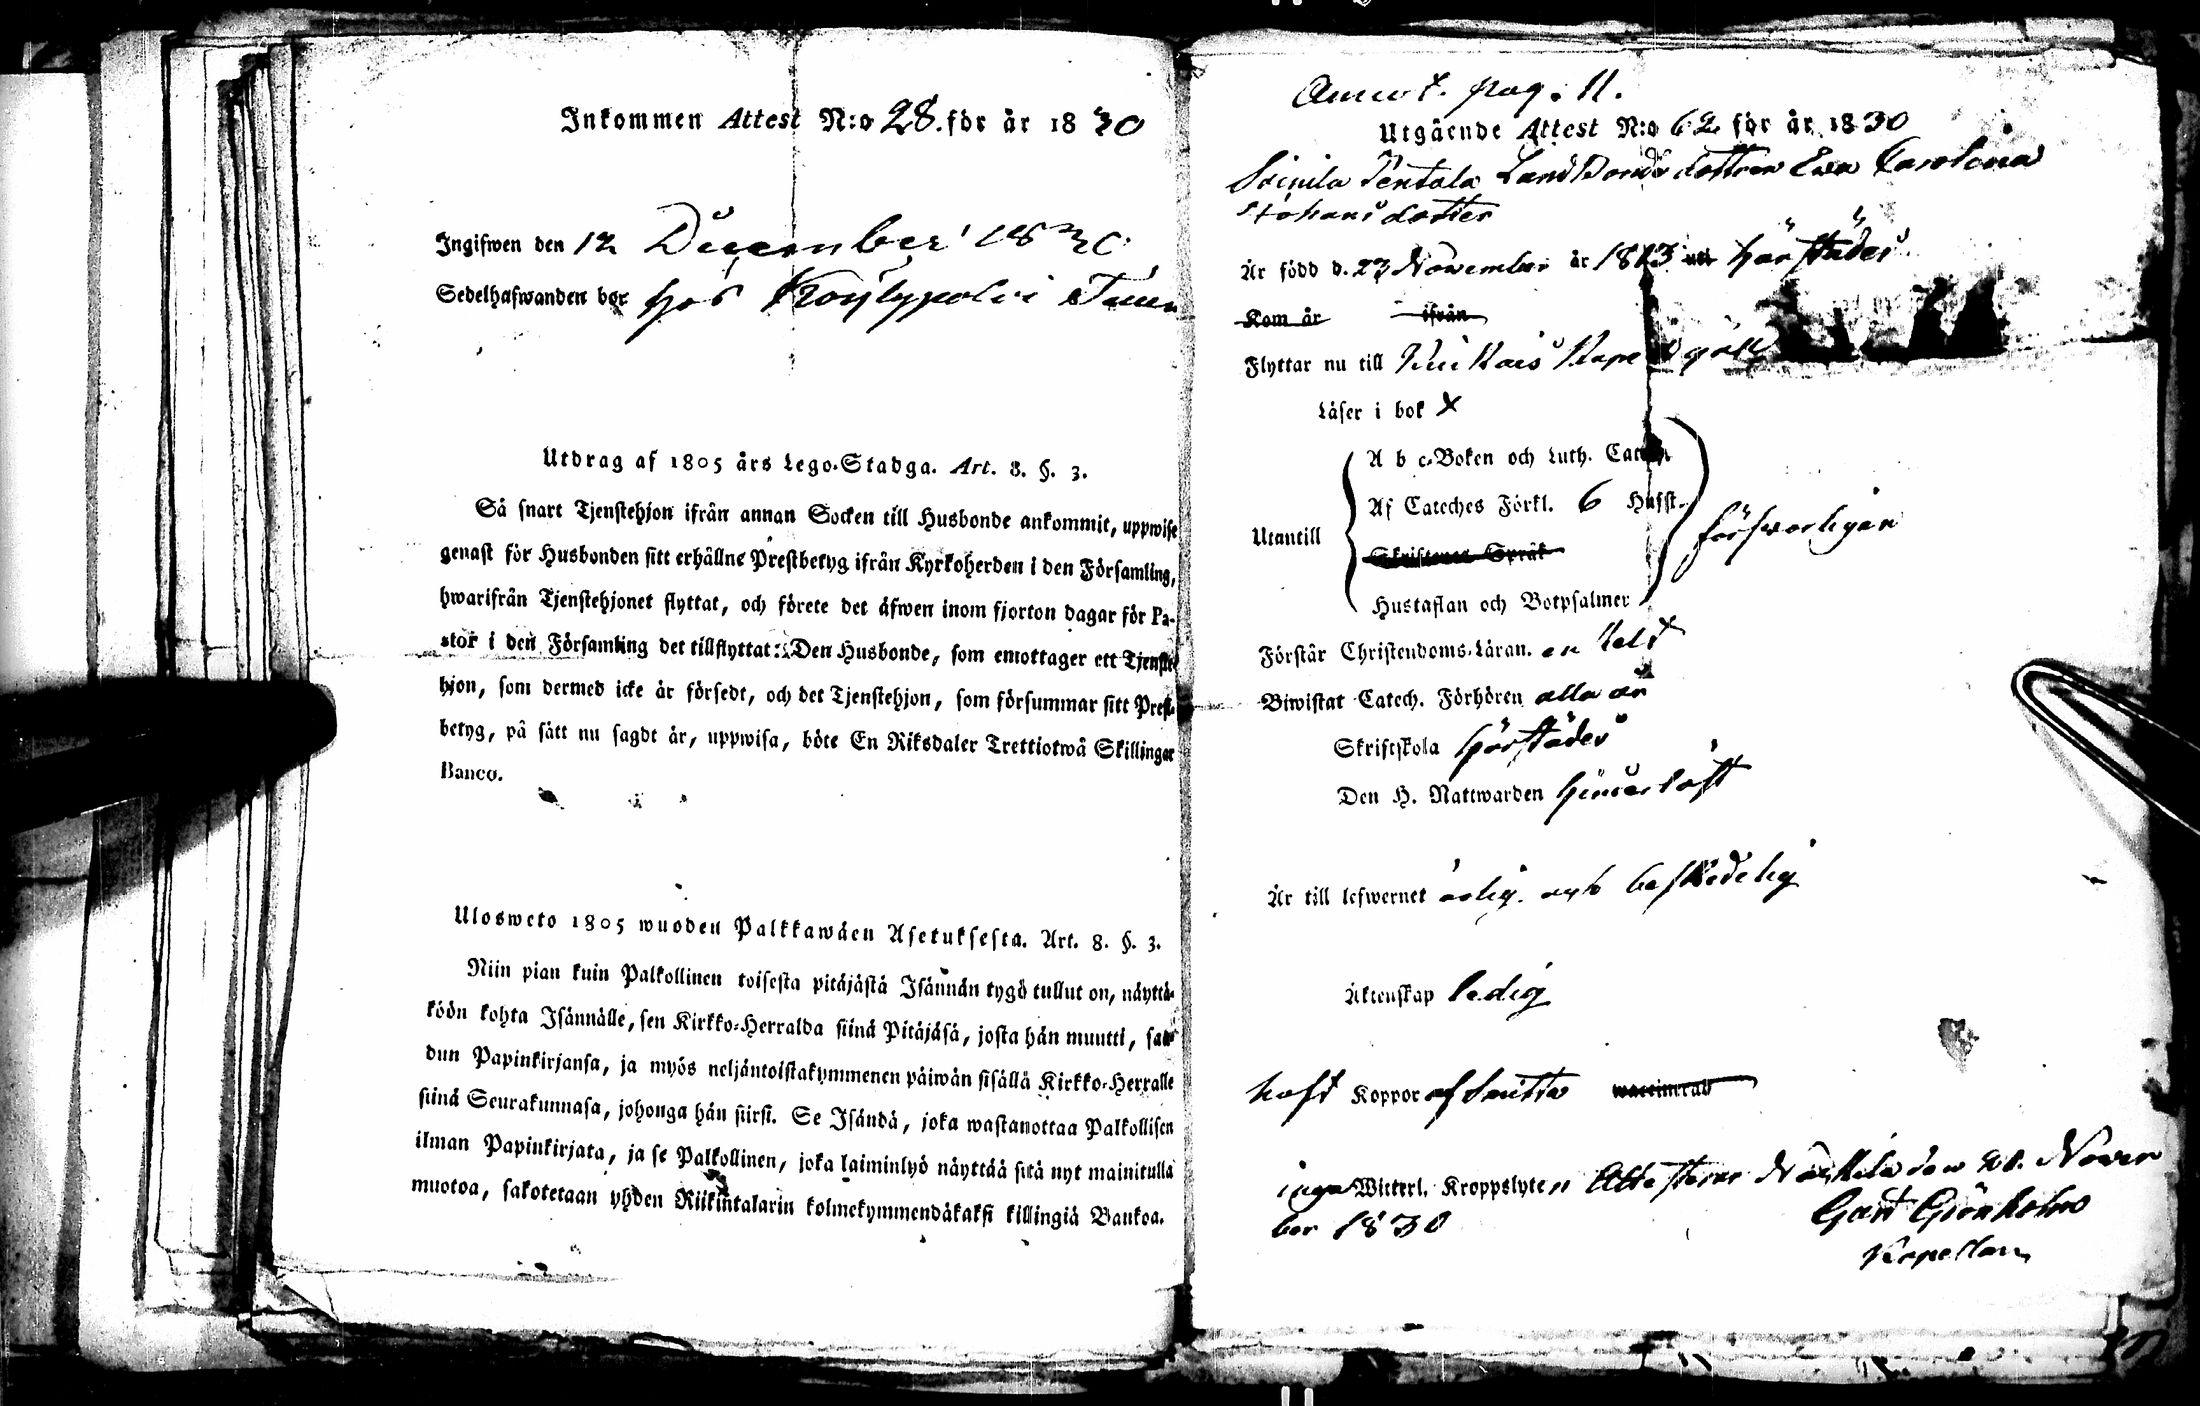 Inkommen Attest N:o 28. för år 1830
Ingifwen den 12 December 1830
Sedelhafwanden bor hos
Utdrag af 1805 års Lego-Stadga. Art. 8. §. 3.
Så snart Tjenstehjon ifrån annan Socken till Husbonde ankommit, uppwise
genast för Husbonden sitt erhållne Prestbetyg ifrån Kyrkoherden i den Församling,
hwarifrån Tjenstehjonet flyttat, och förete det äfwen inom fjorton dagar för Pa-
stor i den Församling det tillflyttat: Den Husbonde, som emottager ett Tjenste-
hjon, som dermed icke är försedt, och det Tjenstehjon, som försummar sitt Prest-
betyg, på sätt nu sagdt är, uppwisa, böte En Riksdaler Trettiotwå Skillingar
Banco.
Ulosweto 1805 wuoden Palkkawäen Asetuksesta. Art. 8. §. 3.
Niin pian kuin Palkollinen toisesta pitäjästä Isännän tygö tullut on, näyttä-
köön kohta Isännälle, sen Kirkko-Herralda siinä Pitäjäsä, josta hän muutti, saa-
dun Papinkirjansa, ja myös neljäntoistakymmenen päiwän sisällä Kirkko-Herralle
siinä Seurakunnasa, johonga hän siirsi. Se Isändä, joka wastanottaa Palkollisen
ilman Papinkirjata, ja se Palkollinen, joka laiminlyö näyttää sitä nyt mainitulla
muotoa, sakotetaan yhden Riikintalarin kolmekymmendäkaksi killingiä Bankoa.
Annot. pag. 11.
Utgående Attest N:o 62 för år 1830
Pentala Landbonde dottren Ewa Carolina
Johansdotter
Är född d. 23 November år 1813 härstädes
Kom år ifrån
Flyttar nu till Kapell
Läser i bok x
A b c-Boken och Luth. Catech.
Af Cateches Förkl. 6 Husst.
Utantill försvarligen
Skriftenes Språk
Hustaflan och Botpsalmer
Förstår Christendoms-Läran.
Biwistat Catech. Förhören alla år
Skriftskola härstädes
Den H. Nattwarden
Är till lefwernet ärlig och beskedelig
Äktenskap ledig
haft Koppor af Smitta waccinerad
inga Witterl. Kroppslyten Attesterar den 20. Novem
ber 1830 Grönholm
Kapellan